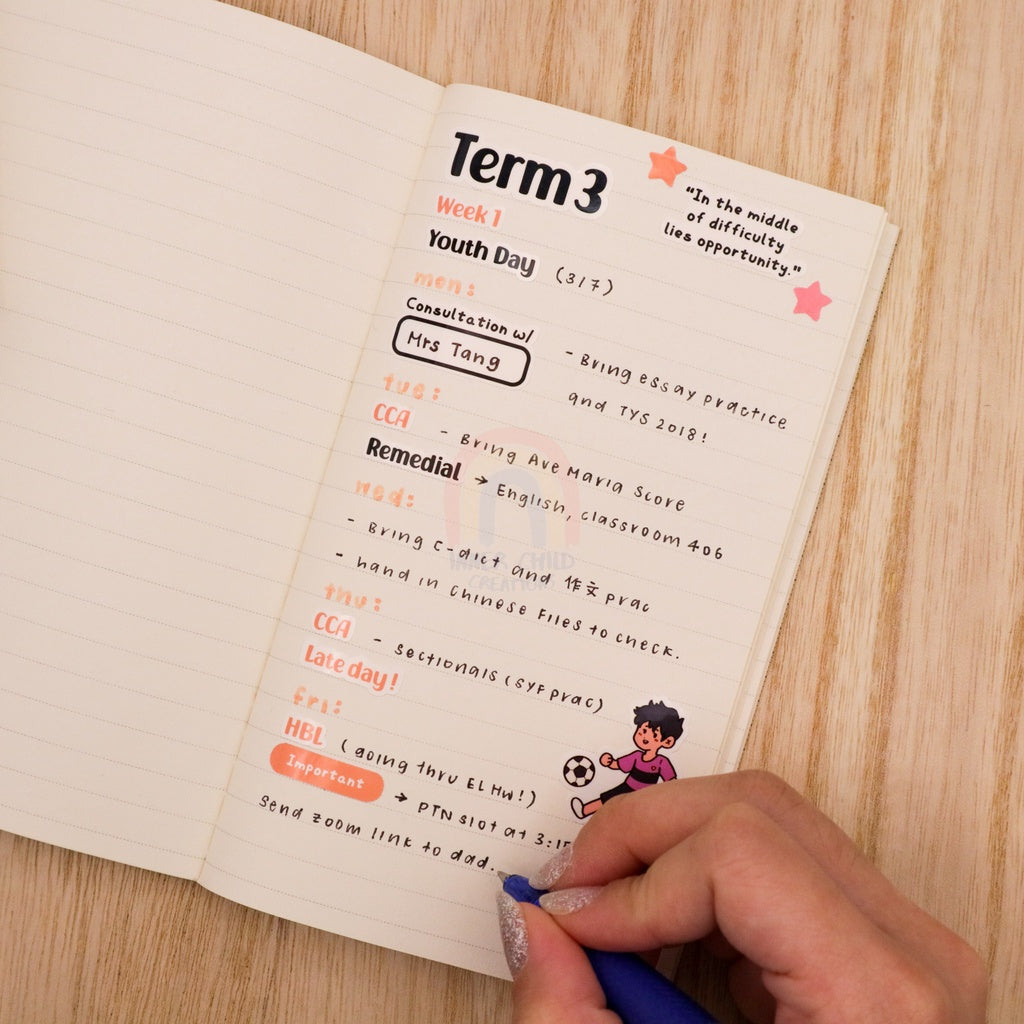 Term 3
"In the middle
of difficulty
lies opportunity."
Week 1
Youth Day (3/7)
mon:
Consultation w/
Mrs Tang
- Bring essay practice
and TYS 2018!
tue:
CCA - Bring Ave Maria Score
Remedial → English, classroom 406
wed:
- Bring C-dict and 作文 prac
- hand in Chinese Files to check.
thu:
CCA - sectionals (SYF prac)
Late day!
fri:
HBL (going thru EL HW!)
Important → PTN slot at 3:15
Send zoom link to dad.
INNER CHILD
CREATIONS